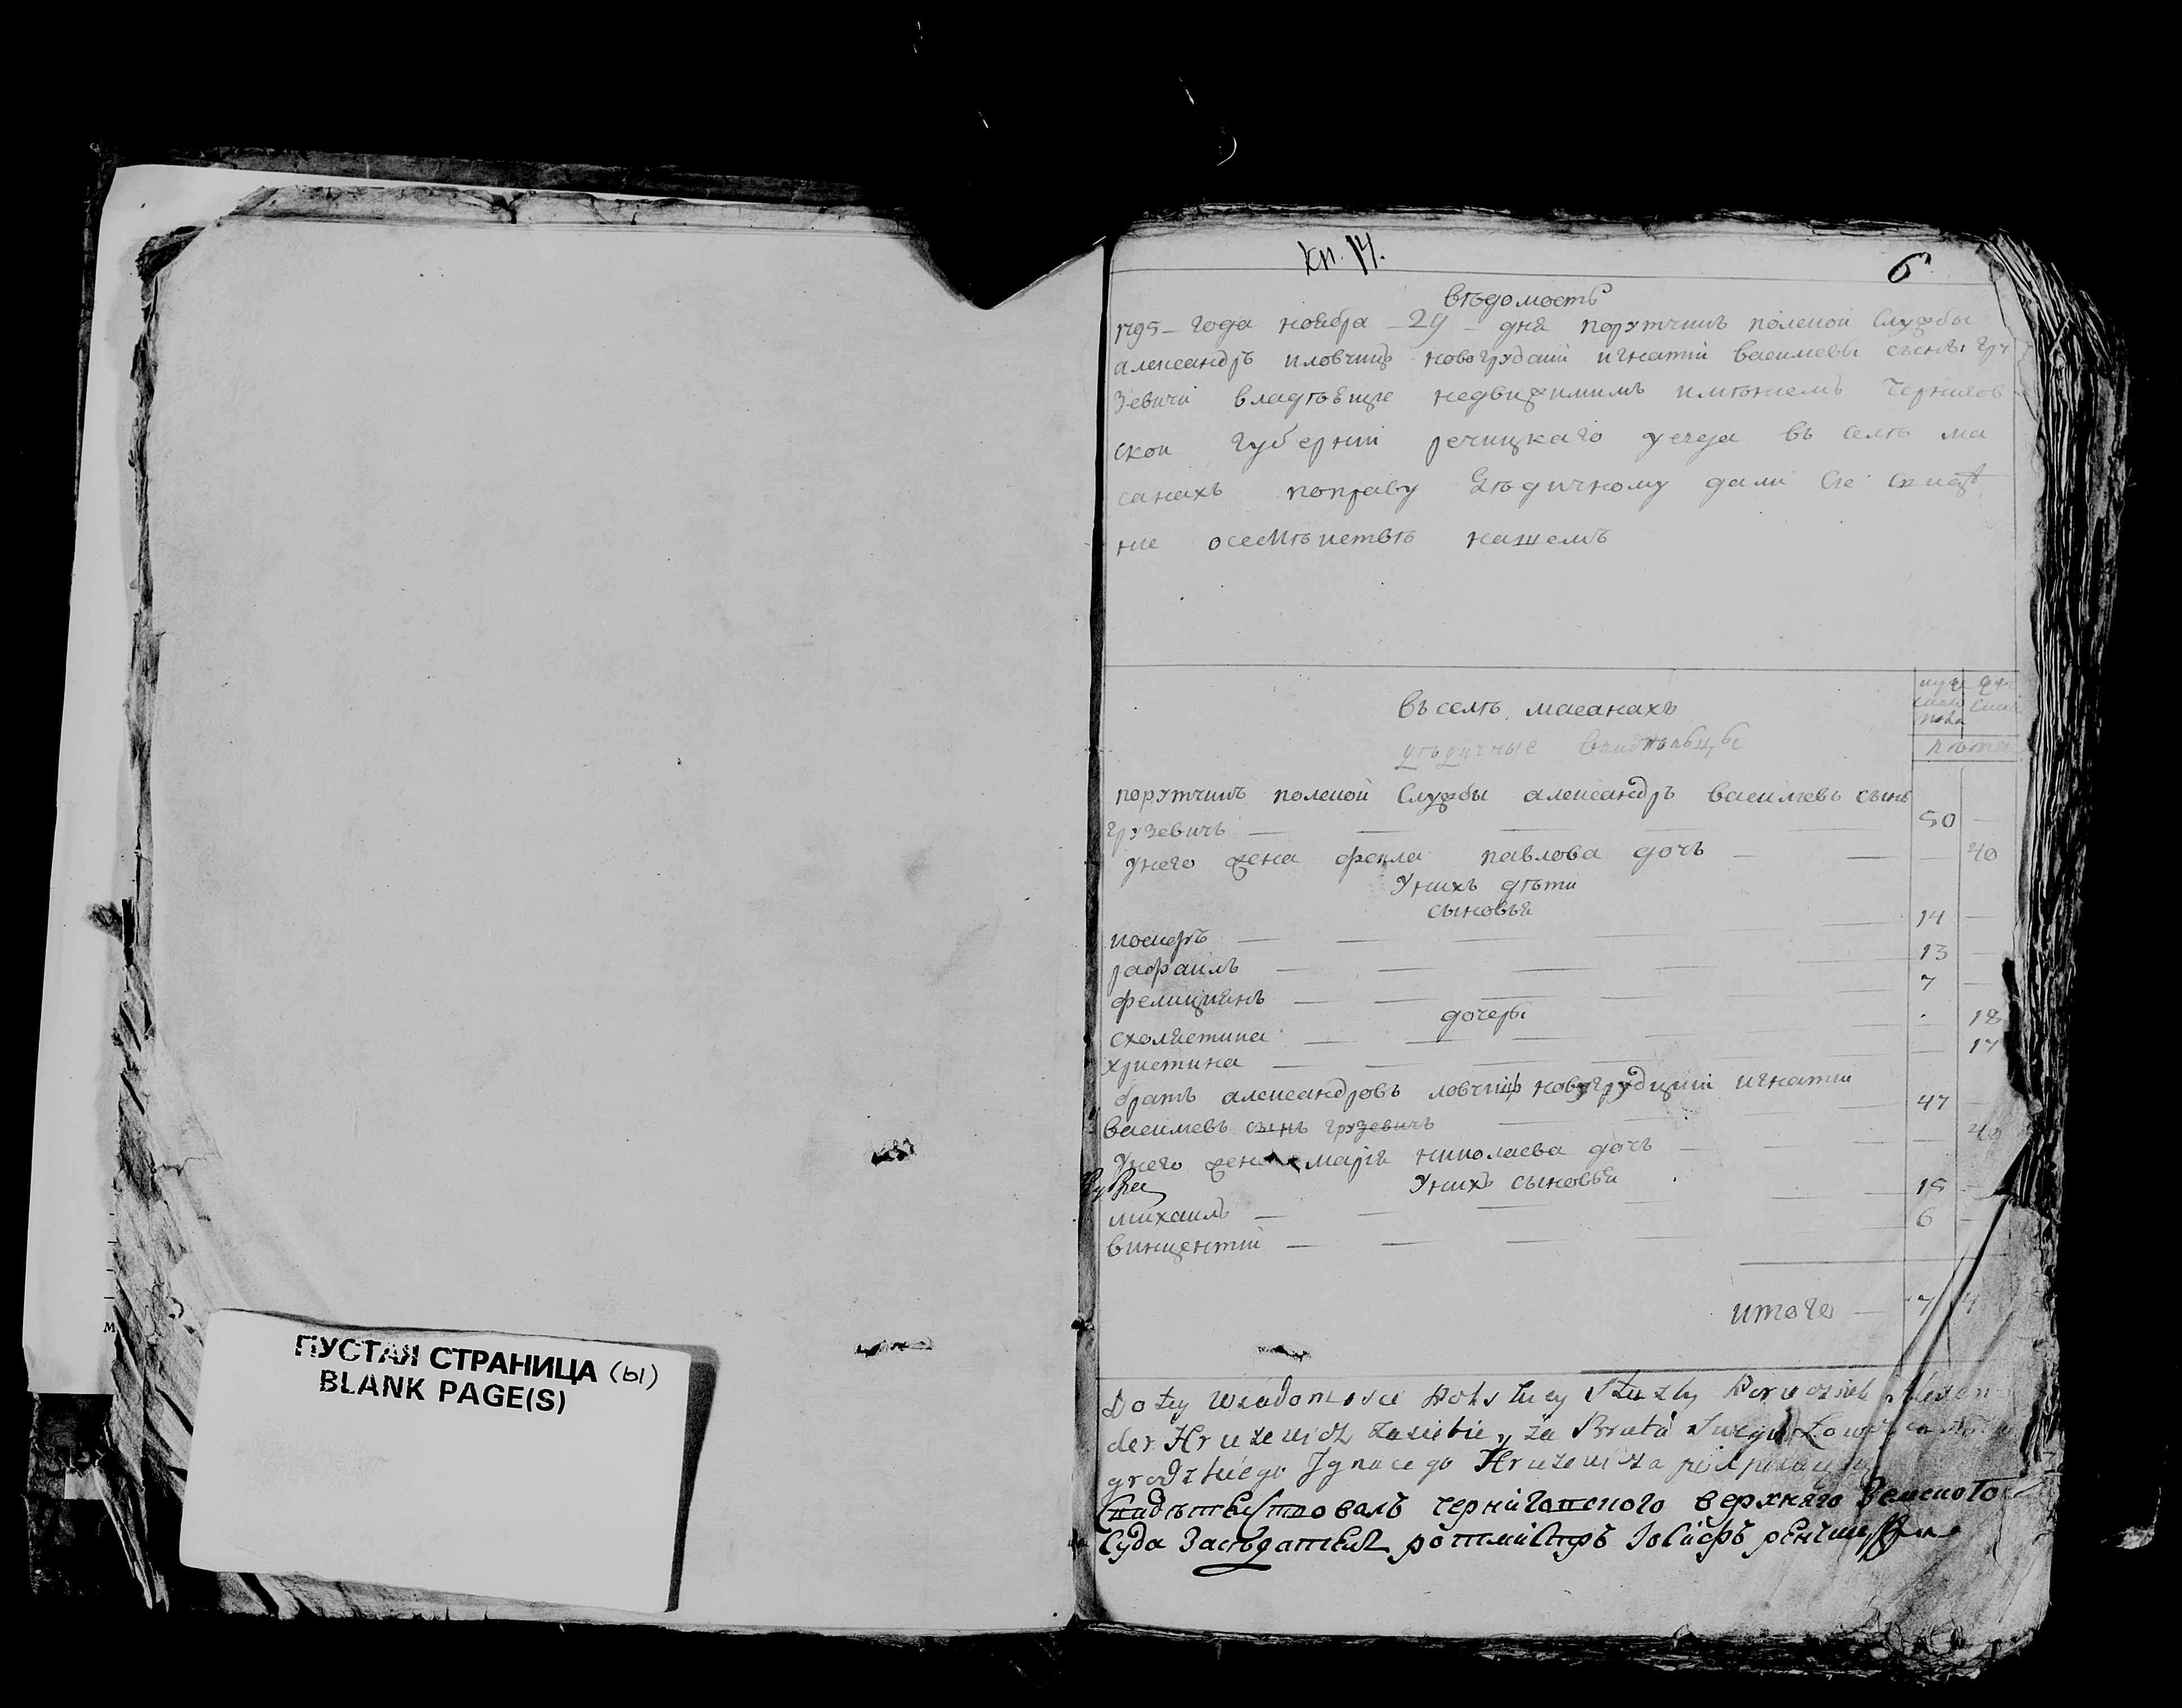 ПУСТАЯ СТРАНИЦА (ы)
BLANK PAGE(S)
кп. 14.
6
вѣдомость
1795 – года ноября – 29 – дня порутчикъ полской службы
александръ иловчий новогрудский игнатий василиевы сыны гру
зевичи владѣющие недвижимимъ имѣниемъ чернигов
ской губернии речицкаго уезда въ селѣ ма
санахъ поправу дѣдичному дали сие
ние осемѣиствѣ нашемъ
въ селѣ масанахъ
дѣдичные владѣльцы
порутчикъ полской службы александръ василиевъ сынъ
грузевичъ — 50 —
унего жена фекла павлова дочь — — 40
унихъ дѣти
сыновья
иосифъ — 14 —
рафаилъ — 13 —
фелициянъ — 7 —
дочери
схолястика — 18
христина — 17
братъ александровъ ловчий новугрудский игнатий
василиевъ сынъ грузевичъ — 47 —
унего жена марія николаева дочь — — 40
унихъ сыновья
михаилъ — 15 —
винцентий — 6 —
итого — 7 4
Do tey wiadomosci Polskiey Służby Porucznik Alexan
der Hruzewicz za siebie y za Brata Swego Łowczego
grodzkiego Jgnacego Hruzewicza
Свидѣтельствовалъ черниговского верхняго Земского
Суда Засѣдатель ротмистръ Иосифъ